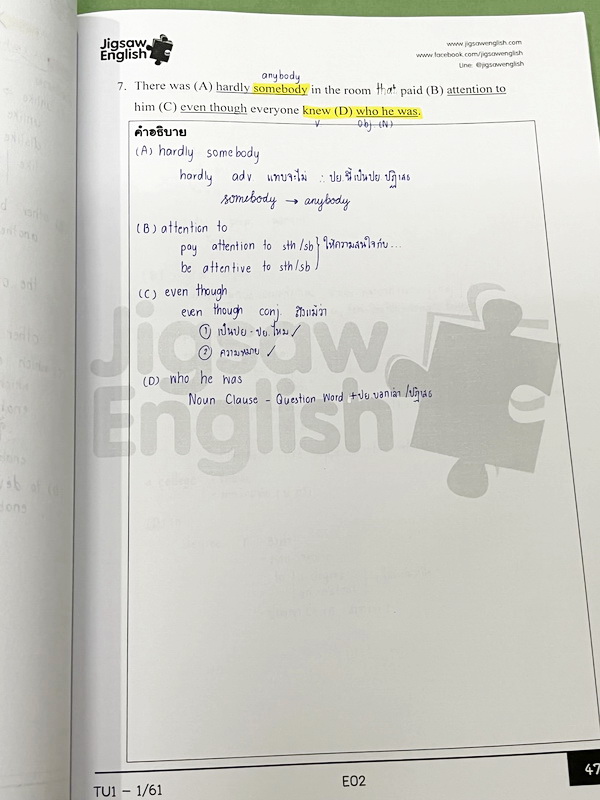 Jigsaw
English
www.jigsawenglish.com
www.facebook.com/jigsawenglish
Line: @jigsawenglish
anybody
7. There was (A) hardly somebody in the room that paid (B) attention to
him (C) even though everyone knew (D) who he was.
V Obj (N)
คำอธิบาย
(A) hardly somebody
hardly adv แทบจะไม่ ∴ ปย.นี้เป็นปย ปฏิเสธ
somebody → anybody
(B) attention to
pay attention to sth/sb } ให้ความสนใจกับ...
be attentive to sth/sb
(C) even though
even though conj. ถึงแม้ว่า
① เป็นปย - ปย.ไหม ✓
② ความหมาย ✓
(D) who he was
Noun Clause - Question Word + ปย บอกเล่า/ปฏิเสธ
Jigsaw
English
TU1 - 1/61
E02
47